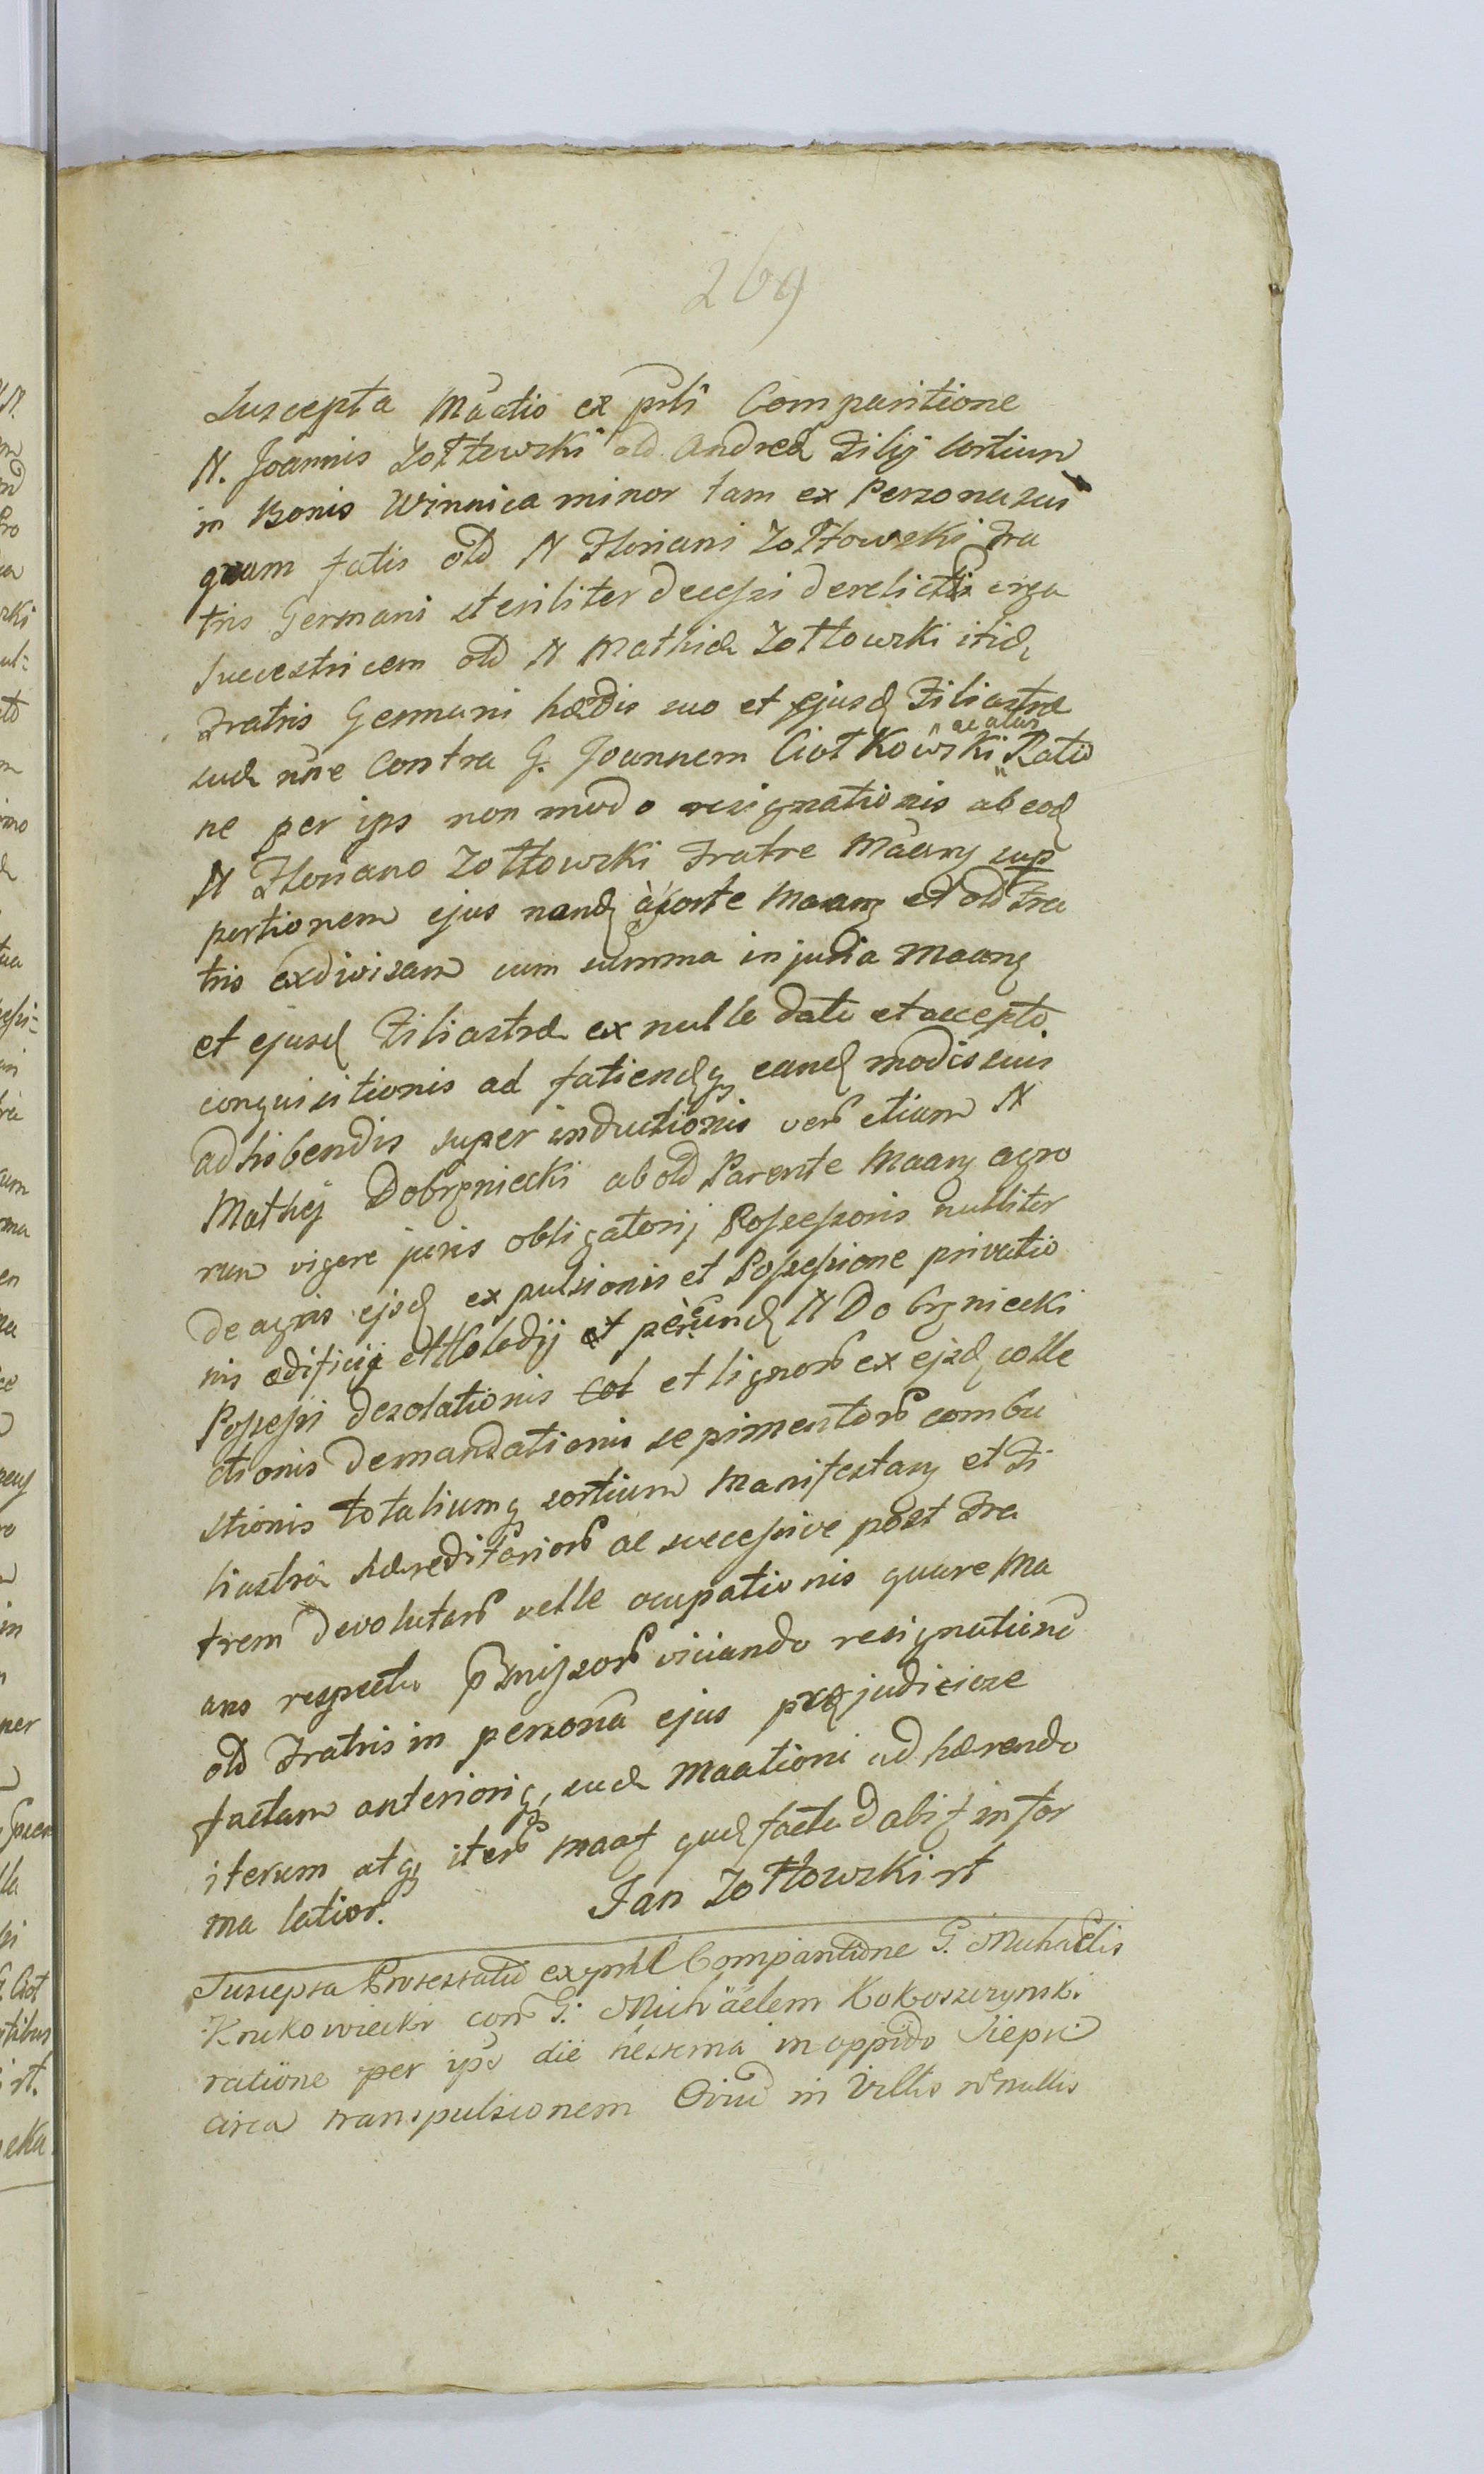 269
Suscepta Mãatio ex prli Comparitione
N. Joannis Zołtowski old Andreæ Filij sortium
in Bonis Winnica minor tam ex Persona sui
quam fatis old N Floriani Zołtowski Fra
tris Germani steriliter decessi derelictis erga
Sucestricem old N Mathiæ Zołtowski itid
Fratris Germani hædis suo et ejusd Filiastræ
suæ nñe Contra G. Joannem Ciotkowski " ac alias " Ratio
ne per ips non modo resignationis ab eod
N Floriano Zołtowski Fratre Mãang sup
portionem ejus nand à sorte Maang et old Fra
tris exdivisam cum summa injuria Maang
et ejusd Filiastræ ex nullo dato et accepto
conquisitionis ad fatiendq eand modis suis
adhibendis super inductionis vero etium N
Mathej Dobrzniecki ab old Parente Maang agro
rum vigore juris obligatorij Possessoris nulliter
de agris ejsd expulsionis et Possessione privatio
nis ædificij et Holodij et per eund N Dobrzniecki
Possessi desolationis et lignor ex ejsd colle
ctionis demandationis sepimentor combu
stionis totaliumq sortium Manifestang et Fi
liastræ hæreditarior ac sucessive post Fra
trem devolutar velle ocupationis quare Ma
ans respectu pmissor viciando resignationē
old Fratris in personã ejus præjudiciose
factam anteriorig, suæ Maationi adhærendo
iterum atq iter maat qud factu dabit infor
ma latior. Jan Zołtowski rt
Suscepta Protestatio ex prli Comparitione G. Michaelis
Krukowiecki con G. Michäelem Kokoszczynski
ratione per ips die hesterna in oppido Siepri
circa transpulsionem Oviu in Villis nnullis